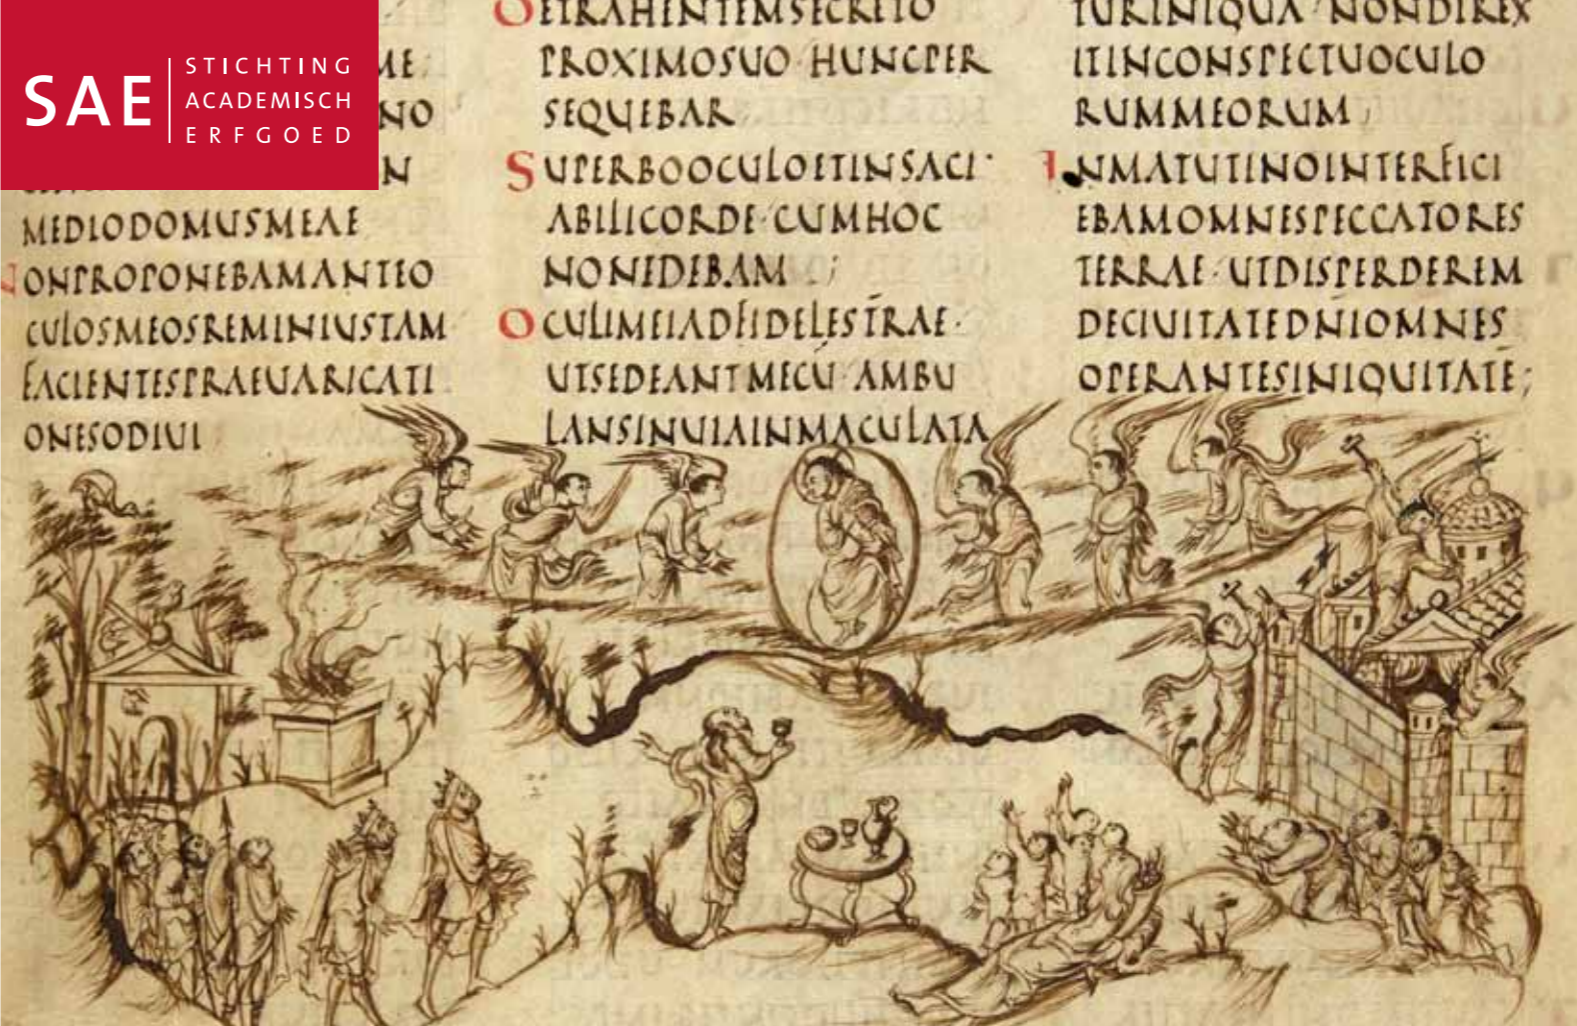 SAE
STICHTING
ACADEMISCH
ERFGOED
ME
NO
N
MEDIODOMUSMEAE
NONPROPONEBAMANTEO
CULOSMEOSREMINIUSTAM
FACIENTESPRAEUARICATI
ONESODIUI
DETRAHENTEMSECRETO
PROXIMOSUO HUNCPER
SEQUEBAR
SUPERBOOCULOETINSACI
ABILICORDE CUMHOC
NONEDEBAM ;
OCULIMEIADFIDELESTRAE
UTSEDEANTMECŪ AMBU
LANSINUIAINMACULATA
TURINIQUA NONDIREX
ITINCONSPECTUOCULO
RUMMEORUM;
INMATUTINOINTERFICI
EBAMOMNESPECCATORES
TERRAE UTDISPERDEREM
DECIUITATEDNIOMNES
OPERANTESINIQUITATĒ;